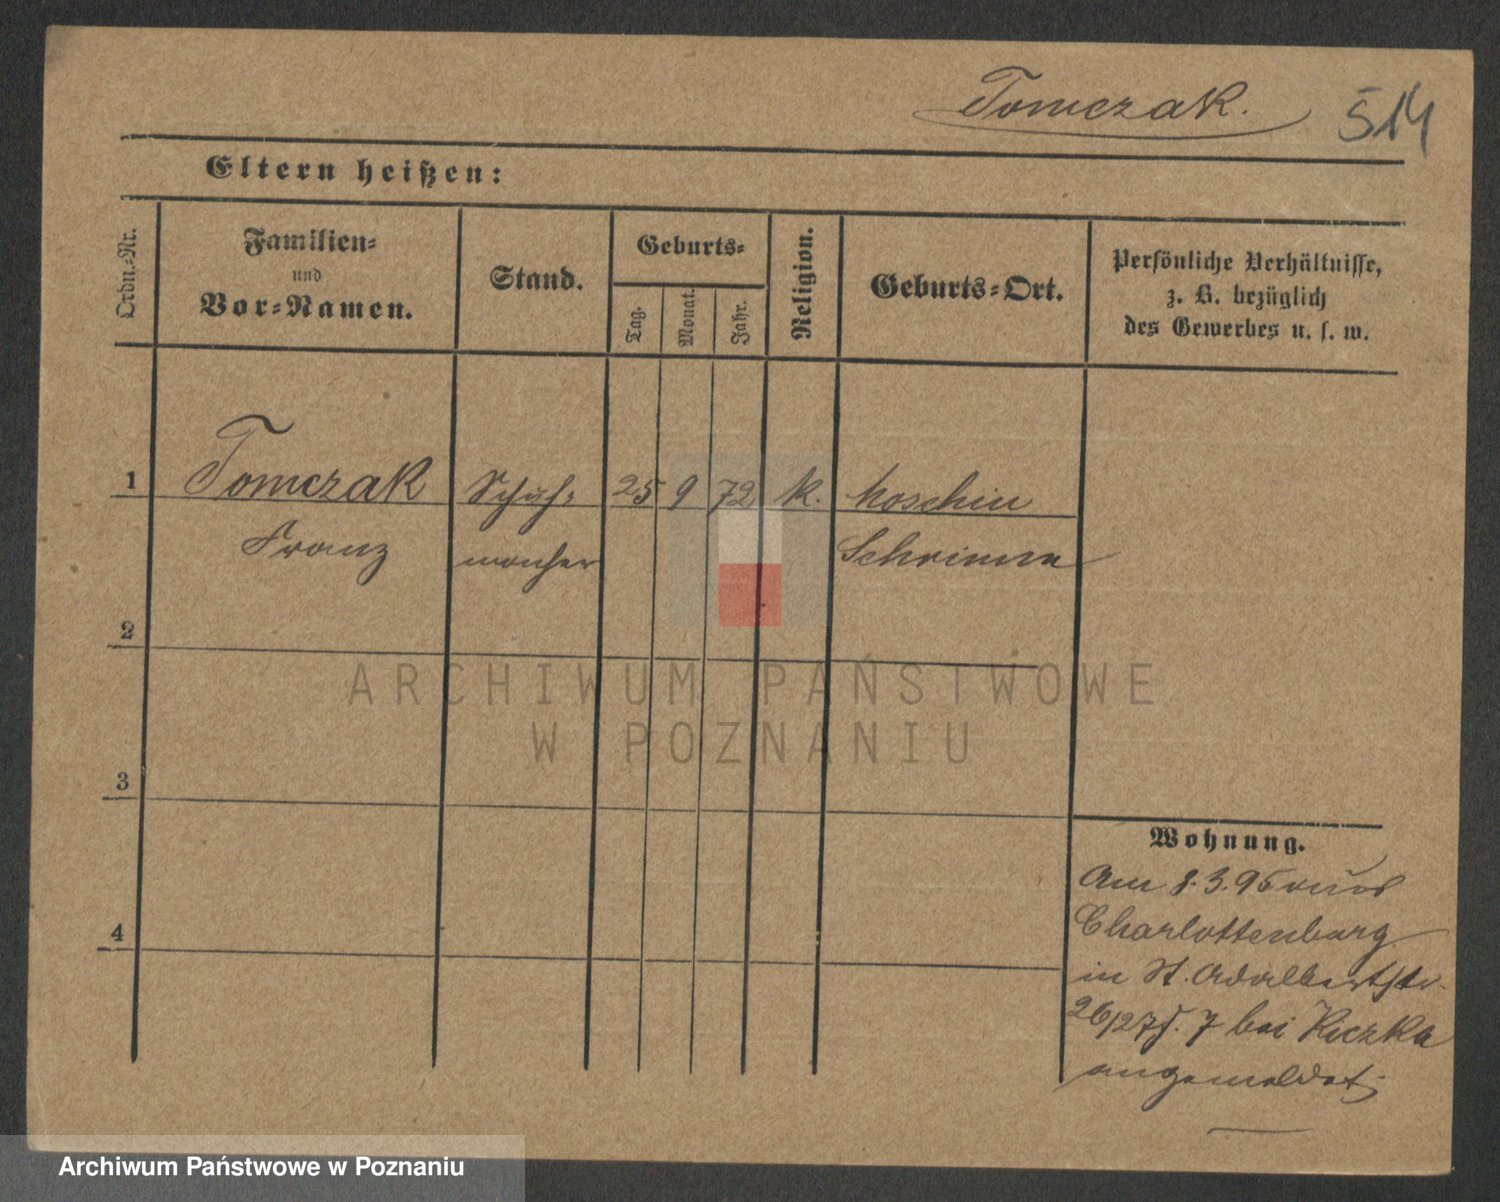 Tomczak.
514
Eltern heißen:
Ordn.-Nr.
Familien-
und
Vor-Namen.
Stand.
Geburts-
Tag.
Monat.
Jahr.
Religion.
Geburts-Ort.
Persönliche Verhältnisse,
z. B. bezüglich
des Gewerbes u. s. w.
1
Tomczak
Schuh-
25
9
72
k.
Moschin
Franz
macher
Schrimm
2
ARCHIWUM PAŃSTWOWE
W POZNANIU
3
Wohnung.
Am 8.3.95 aus
Charlottenburg
4
in St. Adalbertstr.
26/27 7 bei
angemeldet
Archiwum Państwowe w Poznaniu